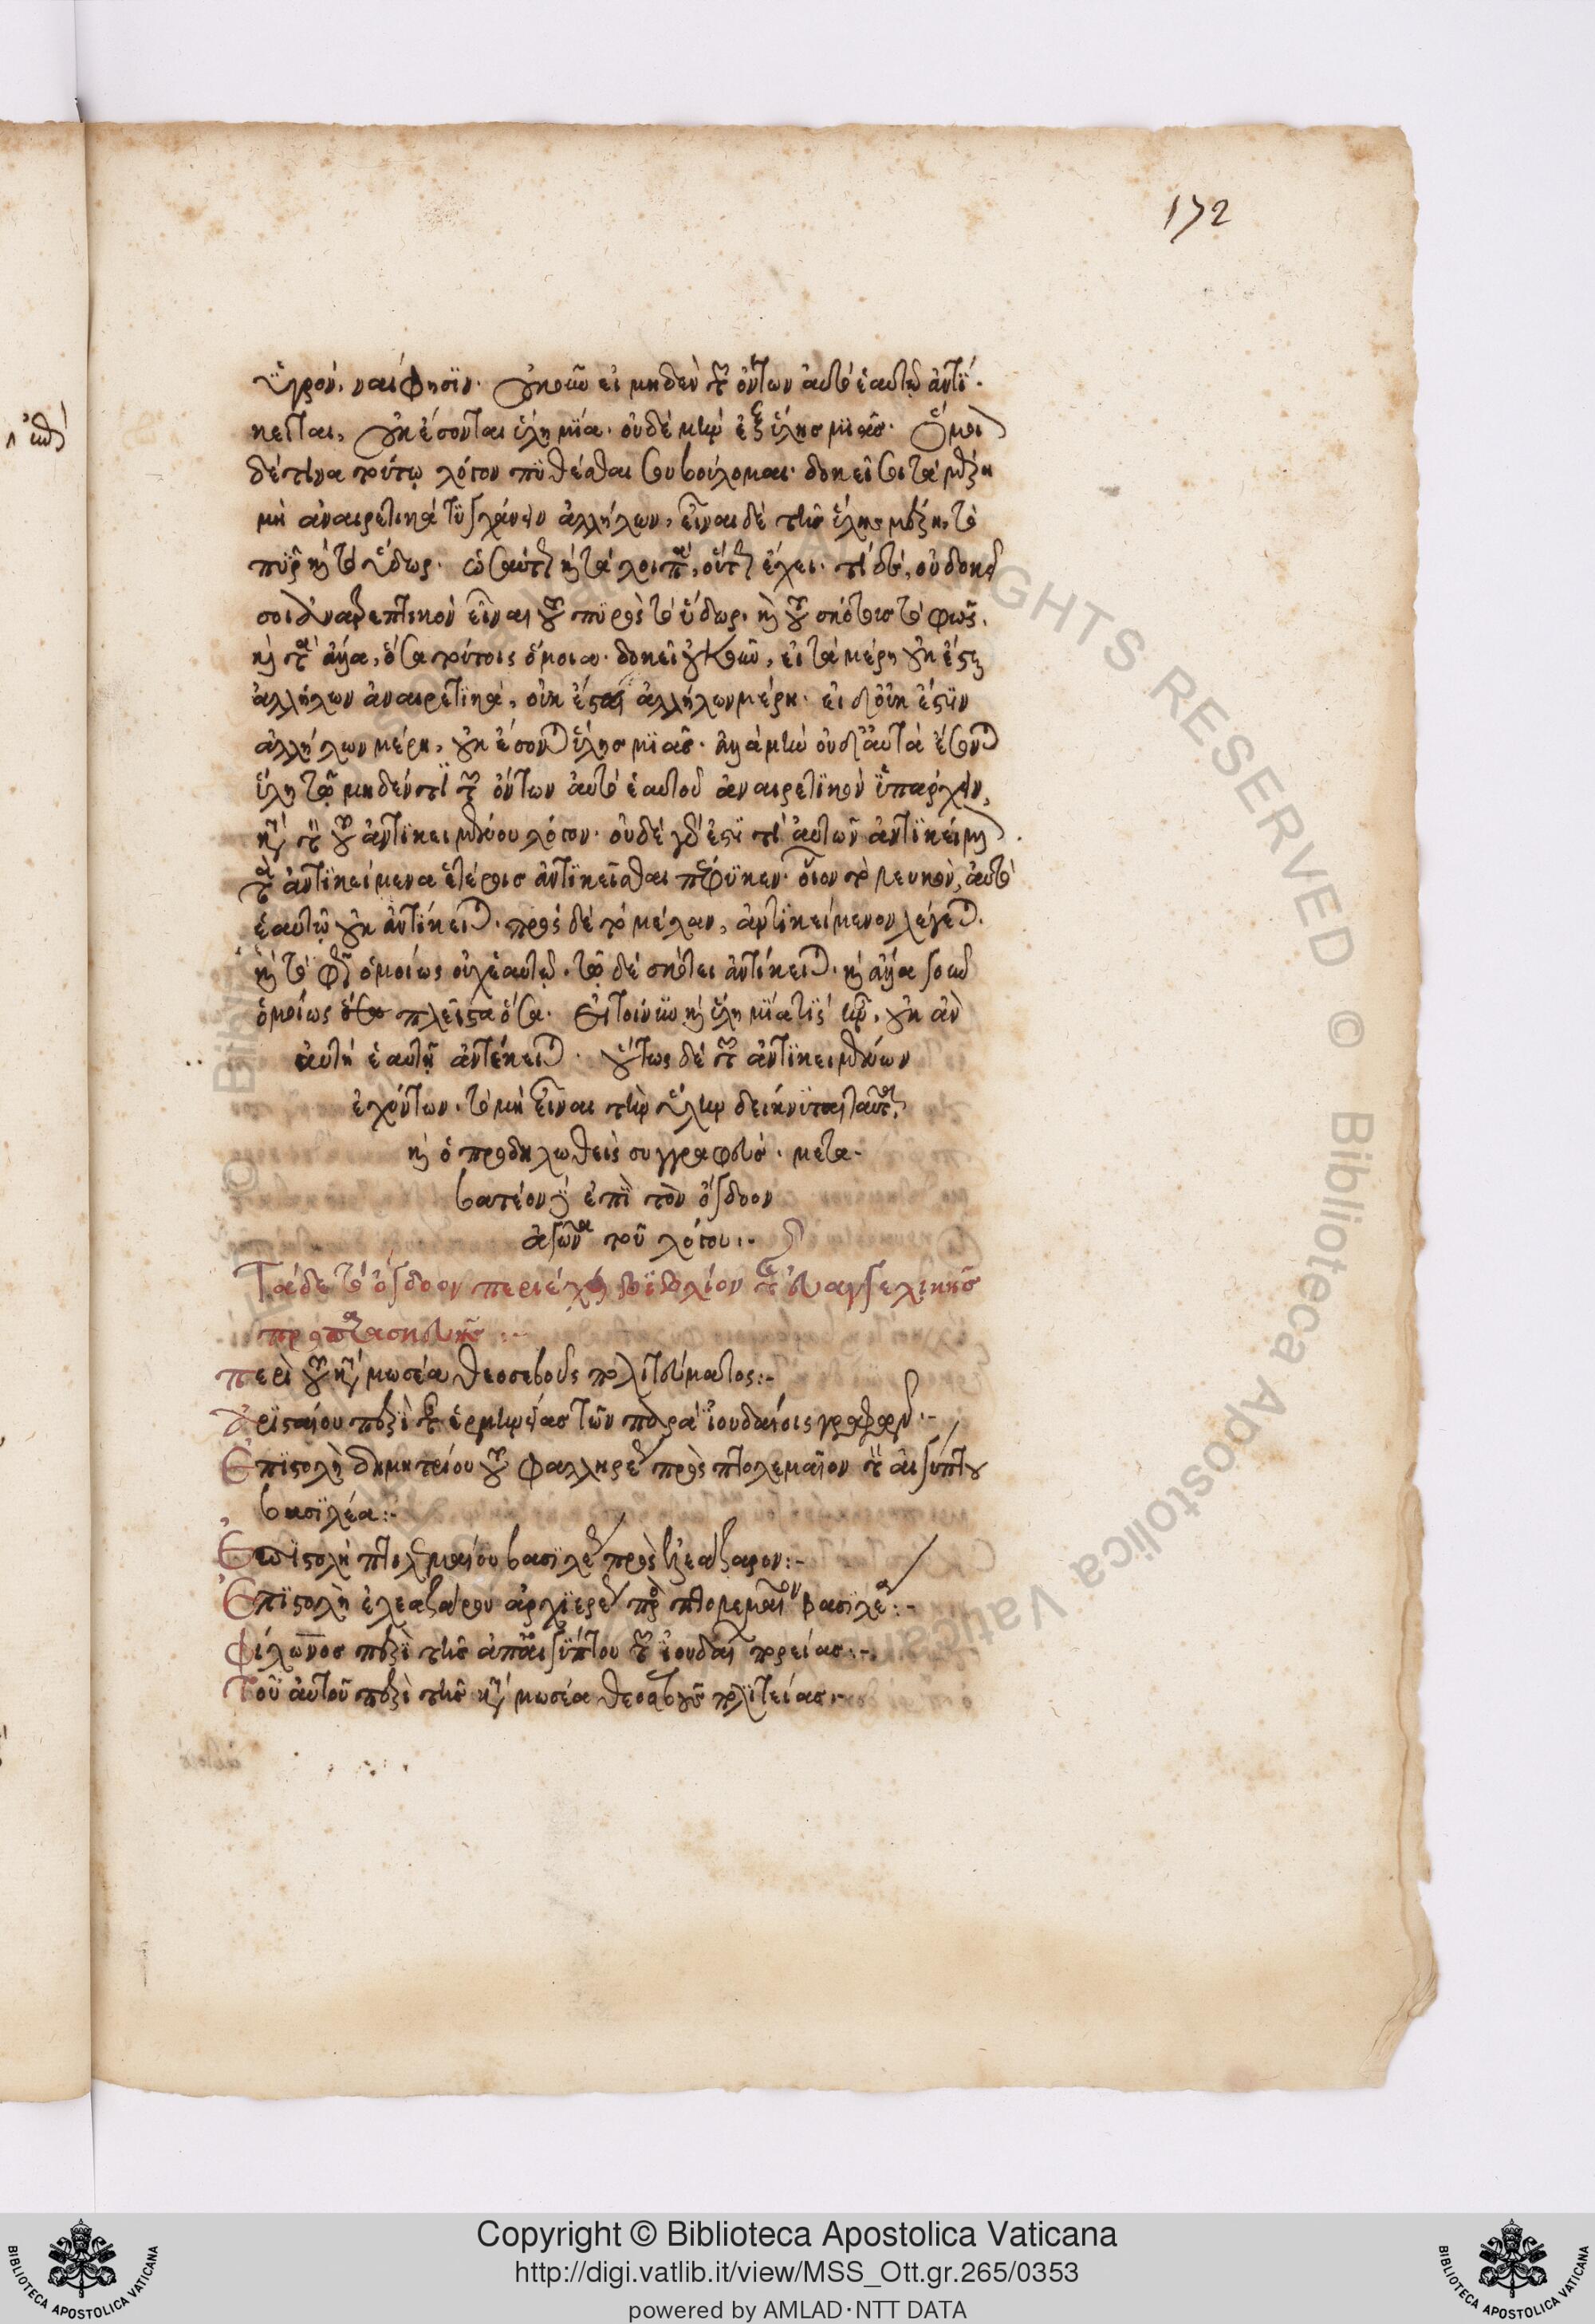 172
ὑγρόν, ναί φησϊν. οὐκοῦν εἰ μηδὲν τῶν ὄντων αὐτὸ ἑαυτῷ ἀντί-
κειται, οὐκ ἔσονται ὕλη μϊα. οὐδὲ μὴν ἐξ ὕλης μϊᾶς.
δέ τινα τούτῳ λόγον πϋθέσθαι βούλομαι. δοκεῖ τὰ μέρη
μὴ ἀναιρετικὰ τυγχάνειν ἀλλήλων, εἶναι δὲ τῆς ὕλης μέρη, τὸ
πῦρ καὶ τὸ ὕδωρ. ὡσαύτως καὶ τὰ λοιπὰ, οὕτως ἔχει. τί δέ, οὐ δοκεῖ
σοι ἀναιρετικὸν εἶναι τοῦ πυρὸς τὸ ὕδωρ. καὶ τοῦ σκότους τὸ φῶς.
καὶ τὰ ἄλλα, ὅσα τούτοις ὅμοια. δοκεῖ οὐκοῦν, εἰ τὰ μέρη οὐκ ἔστιν
ἀλλήλων ἀναιρετϊκὰ, οὐκ ἔσται ἀλλήλων μέρη. εἰ δὲ οὐκ ἔστϊν
ἀλλήλων μέρη, οὐκ ἔσονται ὕλης μϊᾶς. ἀλλὰ μὴν οὐδ' αὐτὰ ἔσονται
ὕλη τῷ μηδέν τϊ τῶν ὄντων αὐτὸ ἑαυτοῦ ἀναιρετϊκὸν ὑπάρχειν,
κατὰ τὸν τοῦ ἀντϊκειμένου λόγον. οὐδὲ γάρ ἐστϊ τι αὐτῶν ἀντϊκείμενον
τὰ ἀντϊκείμενα ἑτέροις ἀντϊκεῖσθαι πέφϋκεν. οἷον τὸ λευκὸν, αὐτὸ
ἑαυτῷ οὐκ ἀντίκειται. πρὸς δὲ τὸ μέλαν, ἀντϊκείμενον λέγεται.
καὶ τὸ φῶς ὁμοίως οὐχ ἑαυτῷ. τῷ δὲ σκότει ἀντίκειται. καὶ ἄλλα γοῦν
ὁμοίως πλεῖστα ὅσα. εἰ τοίνυν καὶ ὕλη μϊα τϊς ἦν, οὐκ ἂν
αὐτὴ ἑαυτῇ ἀντέκειτο. οὕτως δὲ τῶν ἀντϊκειμένων
ἐχόντων. τὸ μὴ εἶναι τὴν ὕλην δείκνϋται ταῦτα
καὶ ὁ προδηλωθεὶς συγγραφεύς. μετα-
βατέον ἐπὶ τὸν ὄγδοον
ἀγῶνα τοῦ λόγου:-
Τάδε τὸ ὄγδοον περιέχει βϊβλίον τῆς εὐαγγελικῆς
προπαρασκευῆς :-
περὶ τοῦ κατὰ μωσέα θεοσεβοῦς πολιτεύματος:-
Ἀρϊσταίου περὶ τῆς ἑρμηνείας τῶν παρὰ ἰουδαίοις γραφῶν:-
Ἐπϊστολὴ δημητρίου τοῦ φαλληρέως πρὸς πτολεμαῖον τὸν αἰγύπτου
βασϊλέα:-
Ἐπϊστολὴ πτολεμαίου βασϊλέως πρὸς ἐλεάζαρον:-
Ἐπϊστολὴ ἐλεαζάρου ἀρχϊερέως πρὸς πτολεμαῖον βασϊλέα:-
Φίλωνος περὶ τῆς ἀπ' αἰγύπτου τῶν ἰουδαίων πορείας:-
Τοῦ αὐτοῦ περὶ τῆς κατὰ μωσέα θεοσεβοῦς πολϊτείας:-
Copyright © Biblioteca Apostolica Vaticana
http://digi.vatlib.it/view/MSS_Ott.gr.265/0353
powered by AMLAD·NTT DATA
BIBLIOTECA APOSTOLICA VATICANA
BIBLIOTECA APOSTOLICA VATICANA